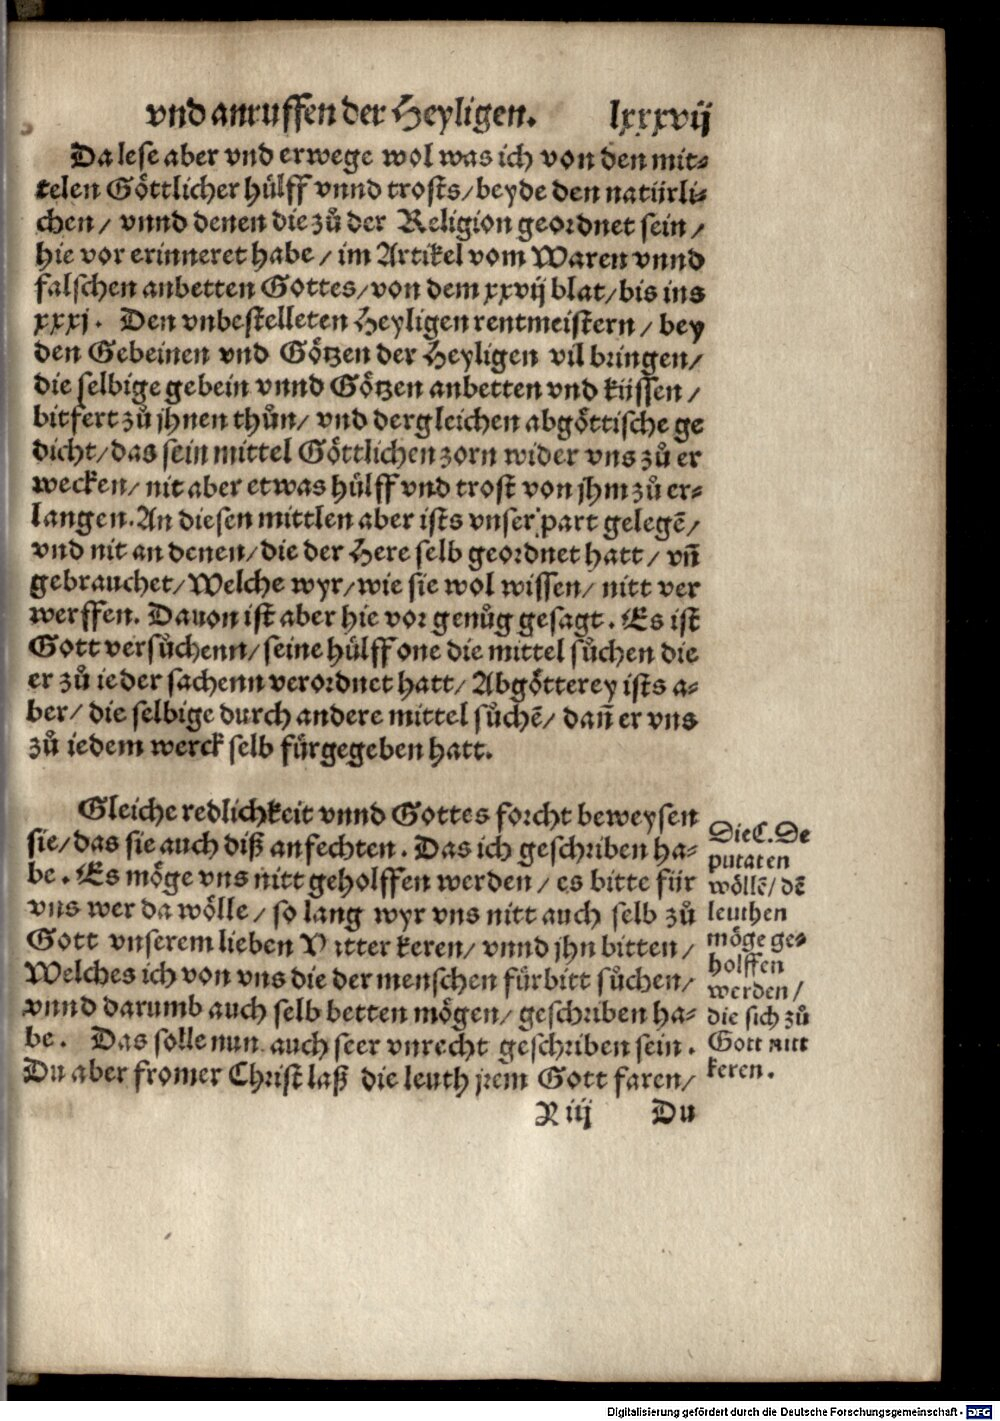 vnd anruffen der Heyligen. lxxxvij
Da lese aber vnd erwege wol was ich von den mit⸗
telen Göttlicher hülff vnnd trosts/ beyde den natürli⸗
chen/ vnnd denen die zů der Religion geordnet sein/
hie vor erinneret habe/ im Artikel vom Waren vnnd
falschen anbetten Gottes/ von dem xxvij blat/ bis ins
xxxj. Den vnbestelleten Heyligen rentmeistern/ bey
den Gebeinen vnd Götzen der Heyligen vil bringen/
die selbige gebein vnnd Götzen anbetten vnd küssen/
bitfert zů jhnen thůn/ vnd dergleichen abgöttische ge
dicht/ das sein mittel Göttlichen zorn wider vns zů er
wecken/ nit aber etwas hülff vnd trost von jhm zů er⸗
langen. An diesen mittlen aber ists vnser part gelegē/
vnd nit an denen/ die der Here selb geordnet hatt/ vn̄
gebrauchet/ Welche wyr/ wie sie wol wissen/ nitt ver
werffen. Dauon ist aber hie vor genůg gesagt. Es ist
Gott versůchenn/ seine hülff one die mittel sůchen die
er zů ieder sachenn verordnet hatt/ Abgötterey ists a⸗
ber/ die selbige durch andere mittel sůchē/ dan̄ er vns
zů iedem werck selb fürgegeben hatt.
Gleiche redlichkeit vnnd Gottes forcht beweysen
sie/ das sie auch diß anfechten. Das ich geschriben ha⸗
be. Es möge vns nitt geholffen werden/ es bitte für
vns wer da wölle/ so lang wyr vns nitt auch selb zů
Gott vnserem lieben Vatter keren/ vnnd jhn bitten/
Welches ich von vns die der menschen fürbitt sůchen/
vnnd darumb auch selb betten mögen/ geschriben ha⸗
be. Das solle nun auch seer vnrecht geschriben sein.
Du aber fromer Christ laß die leuth jrem Gott faren/
Die C. De
putaten
wöllē/ dē
leuthen
möge ge⸗
holffen
werden/
die sich zů
Gott nitt
keren.
R iij Du
Digitalisierung gefördert durch die Deutsche Forschungsgemeinschaft - DFG